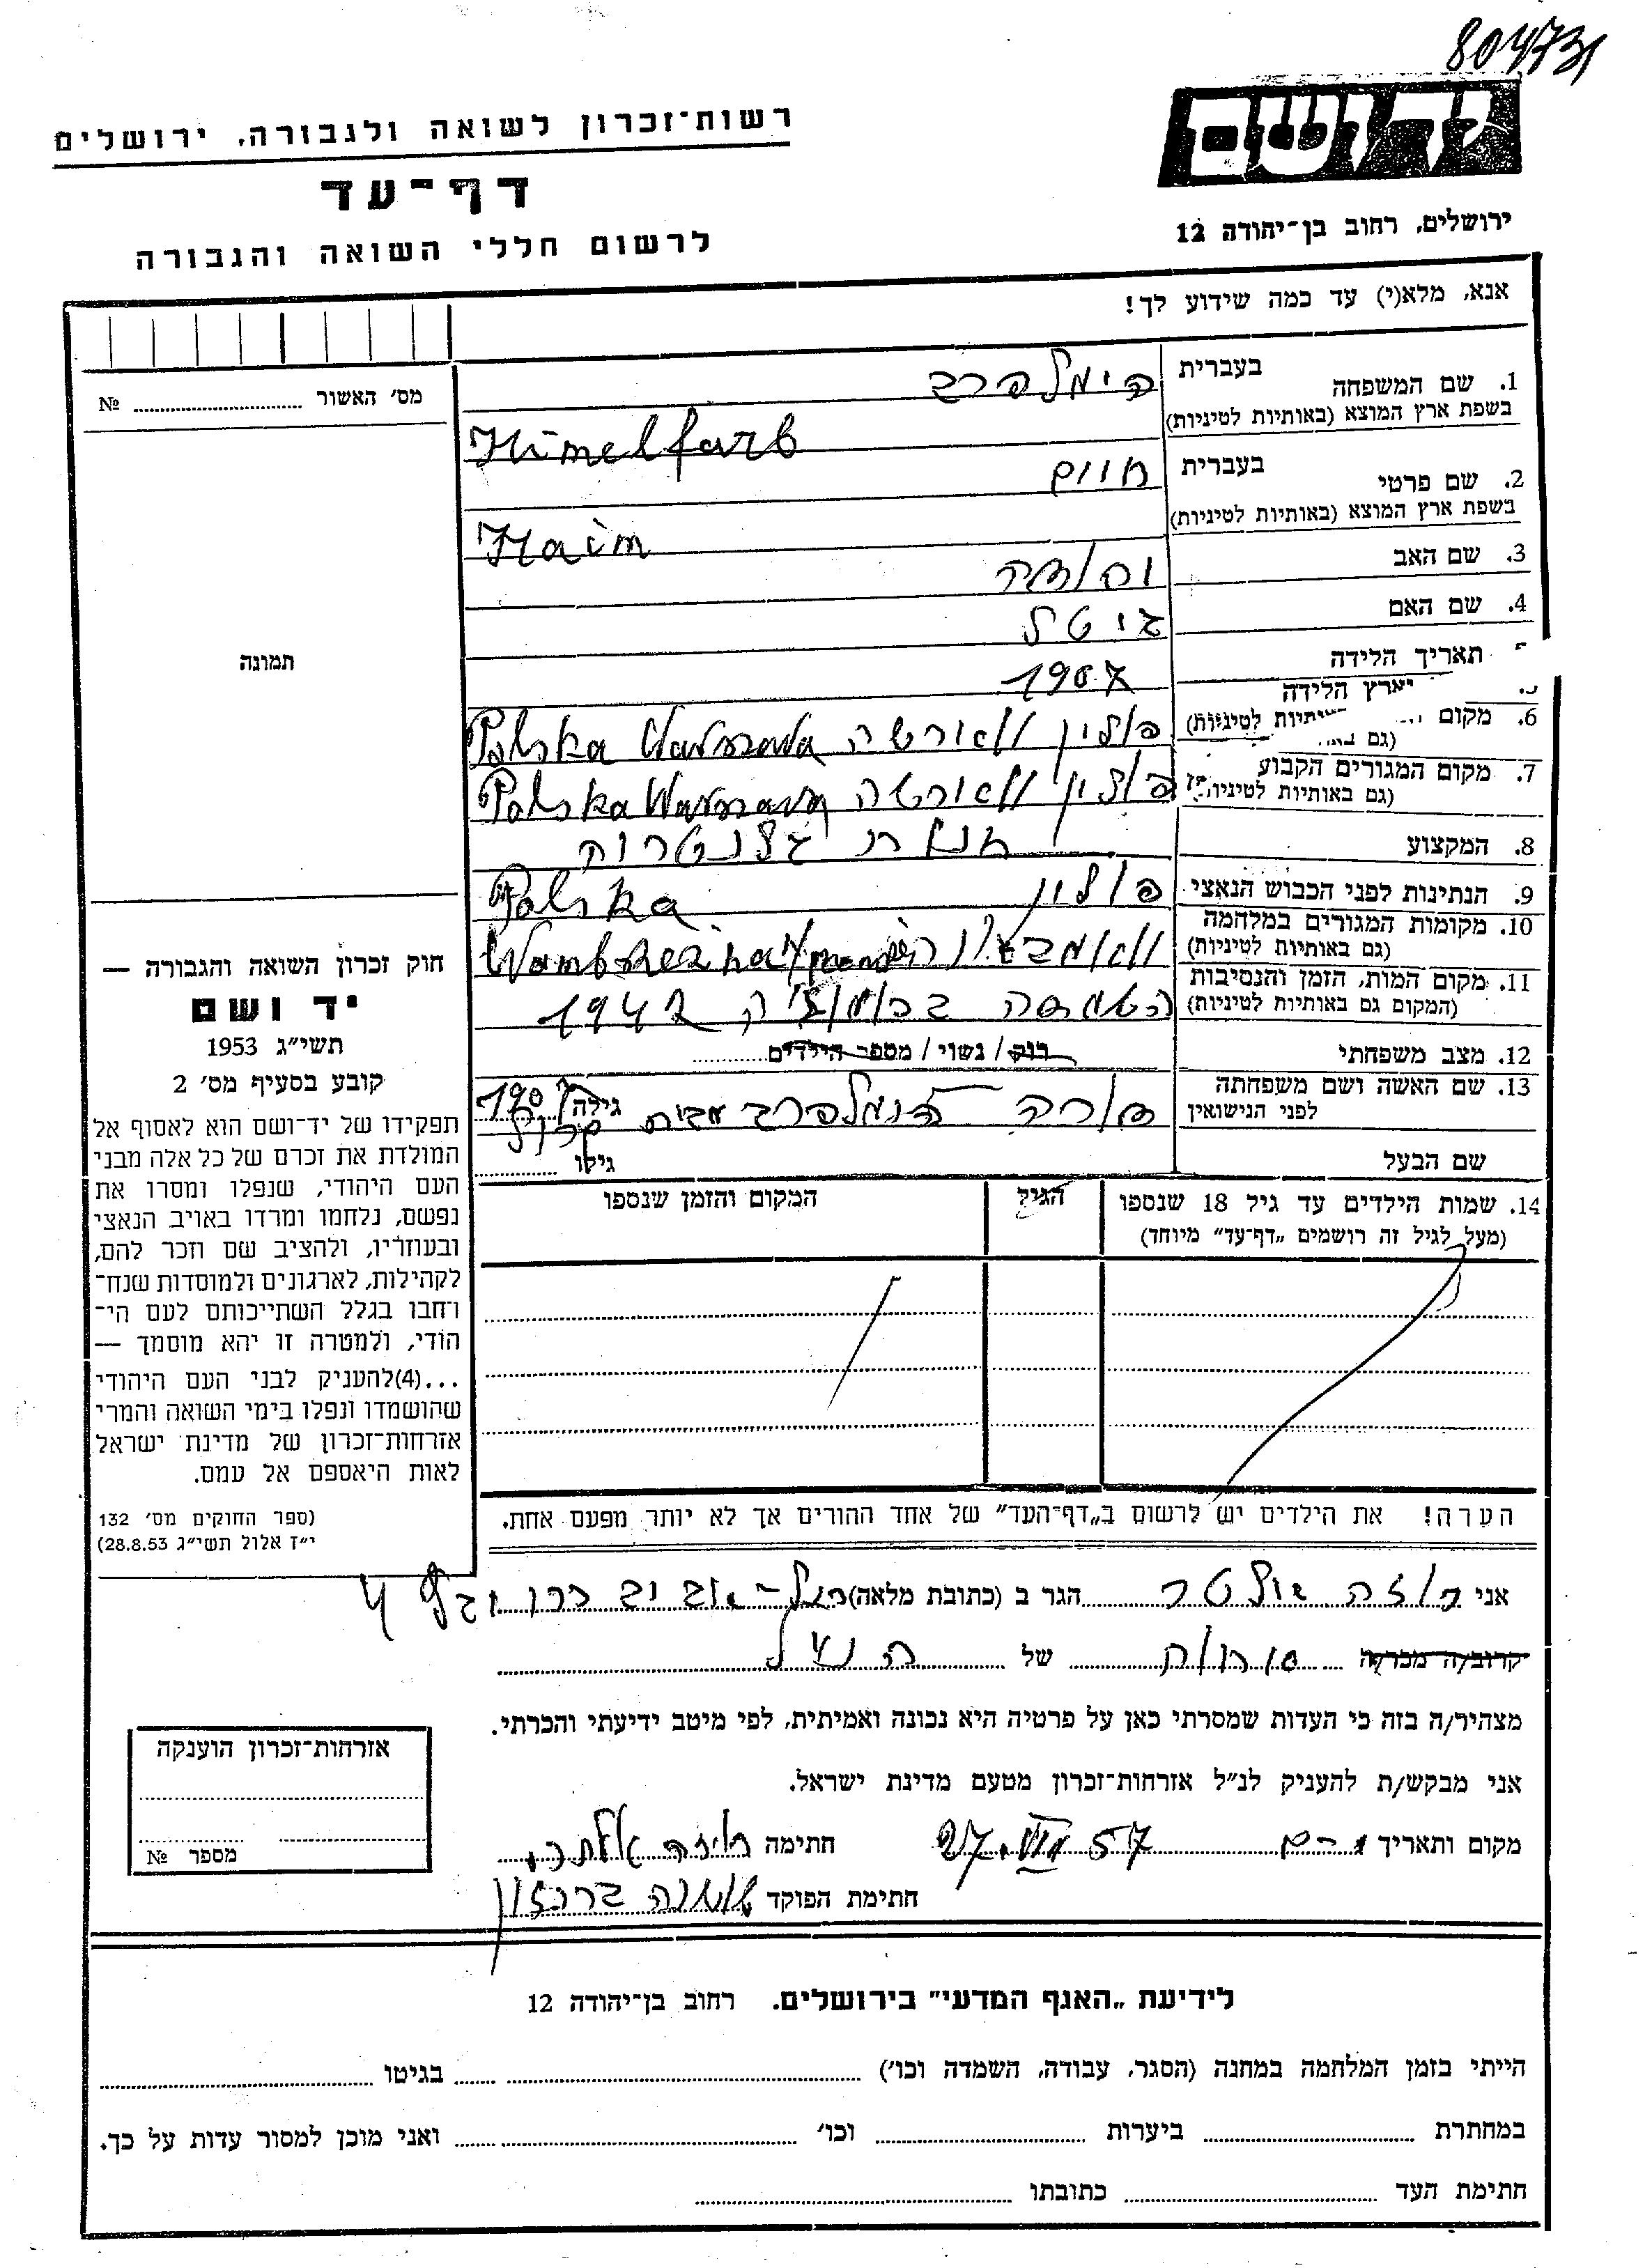 804731
רשות־זכרון לשואה ולגבורה, ירושלים
דף־עד
לרשום חללי השואה והגבורה
ידושם
ירושלים, רחוב בן־יהודה 12
אנא, מלא(י) עד כמה שידוע לך!
מס׳ האשור № ........
תמונה
1. שם המשפחה בעברית הימלפרב
בשפת ארץ המוצא (באותיות לטיניות) Himelfarb
2. שם פרטי בעברית חיים
בשפת ארץ המוצא (באותיות לטיניות) Haim
3. שם האב יהודה
4. שם האם גיטל
תאריך הלידה 1907
6. מקום וארץ הלידה (גם באותיות לטיניות) פולין ווארשה Polska Warszawa
7. מקום המגורים הקבוע (גם באותיות לטיניות) פולין ווארשה Polska Warszawa
8. המקצוע חנות גלנטריה
9. הנתינות לפני הכבוש הנאצי פולין Polska
10. מקומות המגורים במלחמה (גם באותיות לטיניות)
11. מקום המות, הזמן והנסיבות (המקום גם באותיות לטיניות) 1942
12. מצב משפחתי רוק / נשוי / מספר הילדים
13. שם האשה ושם משפחתה לפני הנישואין שרה הימלפרב מבית גילה 1907
שם הבעל גילו ........
14. שמות הילדים עד גיל 18 שנספו (מעל לגיל זה רושמים „דף־עד״ מיוחד)
הגיל
המקום והזמן שנספו
חוק זכרון השואה והגבורה —
יד ושם
תשי״ג 1953
קובע בסעיף מס׳ 2
תפקידו של יד־ושם הוא לאסוף אל
המולדת את זכרם של כל אלה מבני
העם היהודי, שנפלו ומסרו את
נפשם, נלחמו ומרדו באויב הנאצי
ובעוזריו, ולהציב שם וזכר להם,
לקהילות, לארגונים ולמוסדות שנח־
רחבו בגלל השתייכותם לעם הי־
הודי, ולמטרה זו יהא מוסמך —
...(4)להעניק לבני העם היהודי
שהושמדו ונפלו בימי השואה והמרי
אזרחות־זכרון של מדינת ישראל
לאות היאספם אל עמם.
(ספר החוקים מס׳ 132
י״ז אלול תשי״ג 28.8.53)
הערה! את הילדים יש לרשום ב„דף־העד״ של אחד ההורים אך לא יותר מפעם אחת.
אני הגר ב (כתובת מלאה) תל־אביב 4
קרוב/ה מכר/ה של הנ״ל
מצהיר/ה בזה כי העדות שמסרתי כאן על פרטיה היא נכונה ואמיתית, לפי מיטב ידיעתי והכרתי.
אני מבקש/ת להעניק לנ״ל אזרחות־זכרון מטעם מדינת ישראל.
מקום ותאריך 27.VIII 57 חתימה
חתימת הפוקד
אזרחות־זכרון הוענקה
מספר №
לידיעת „האגף המדעי״ בירושלים. רחוב בן־יהודה 12
הייתי בזמן המלחמה במחנה (הסגר, עבודה, השמדה וכו׳) ........ בגיטו ........
במחתרת ........ ביערות ........ וכו׳ ........ ואני מוכן למסור עדות על כך.
חתימת העד ........ כתובתו ........